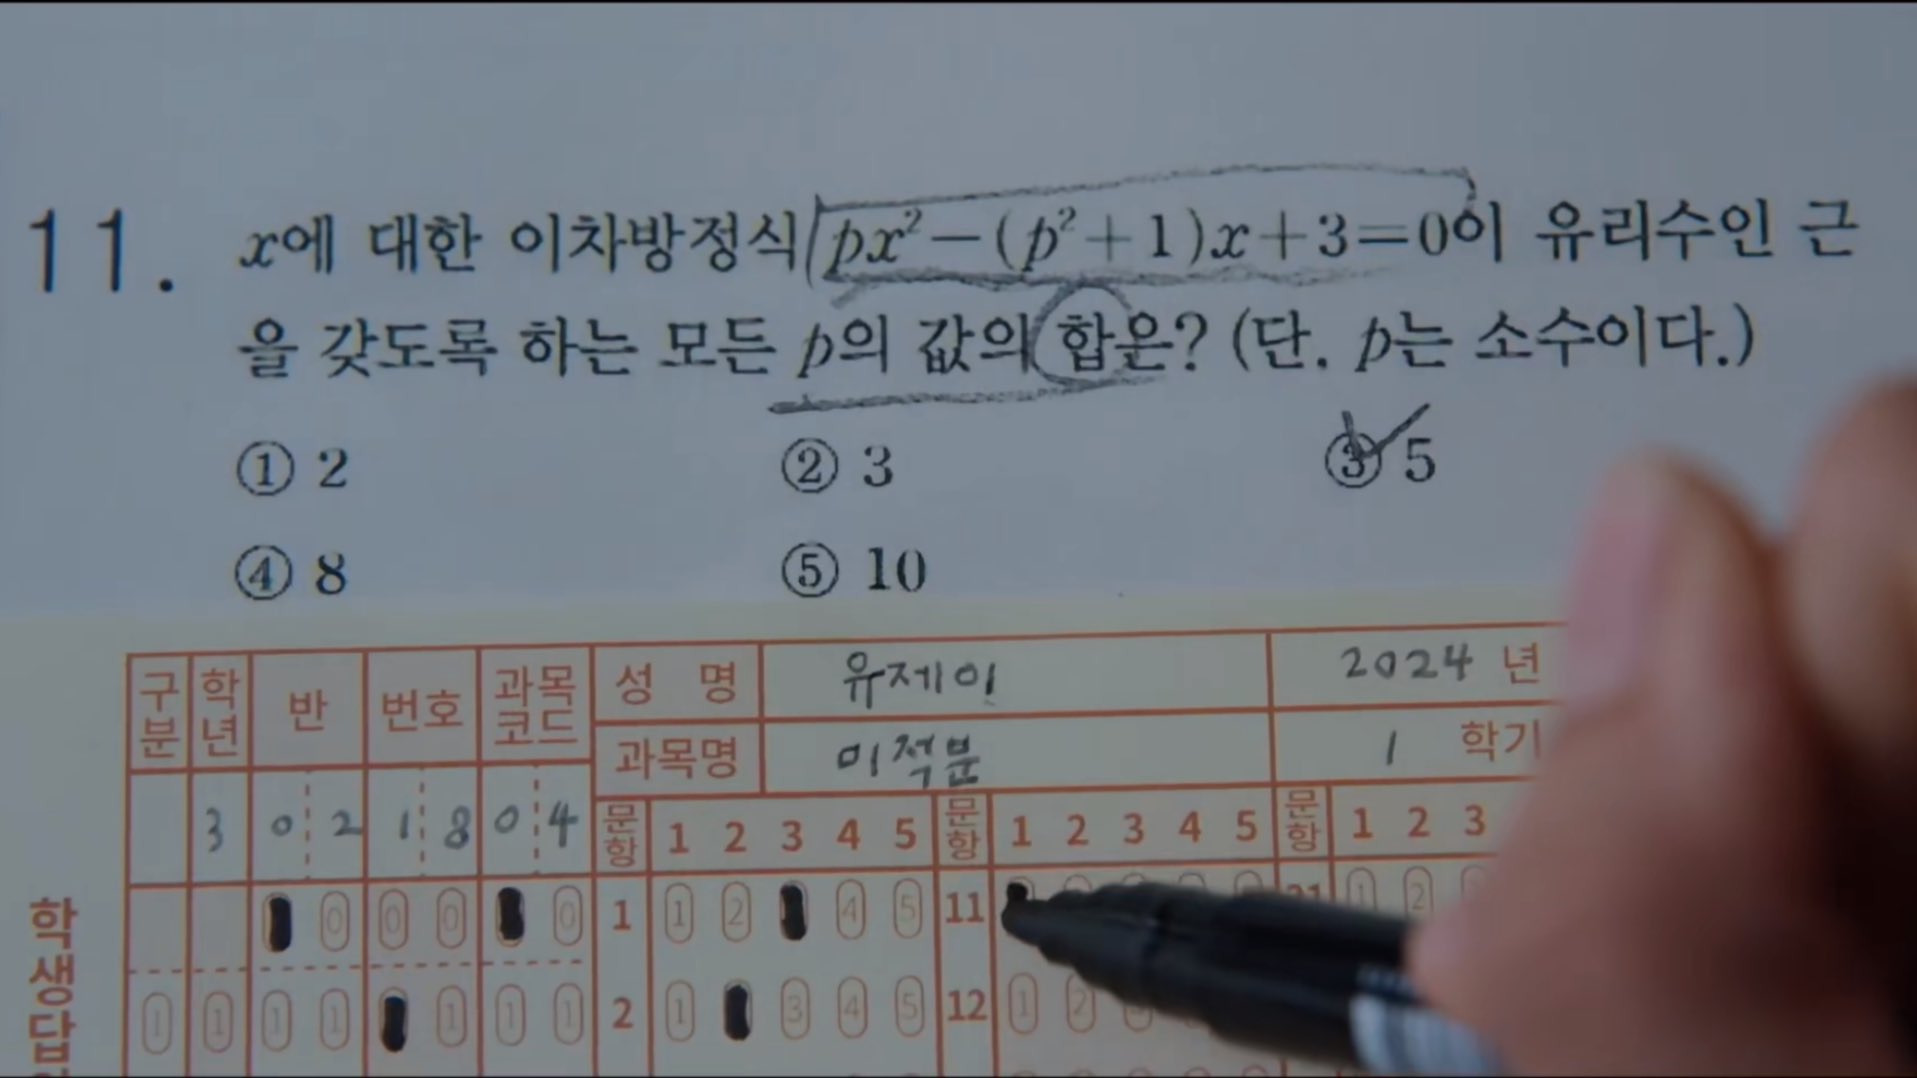 11. x에 대한 이차방정식 px²-(p²+1)x+3=0이 유리수인 근
을 갖도록 하는 모든 p의 값의 합은? (단, p는 소수이다.)
① 2 ② 3 ③ 5
④ 8 ⑤ 10
구분 학년 반 번호 과목코드 성 명 유제이 2024 년
과목명 미적분 1 학기
3 0 2 1 8 0 4 문항 1 2 3 4 5 문항 1 2 3 4 5 문항 1 2 3
0 0 0 0 1 1 2 4 5 11 1 2
1 1 1 1 1 1 1 2 1 3 4 5 12 1 2
학생답